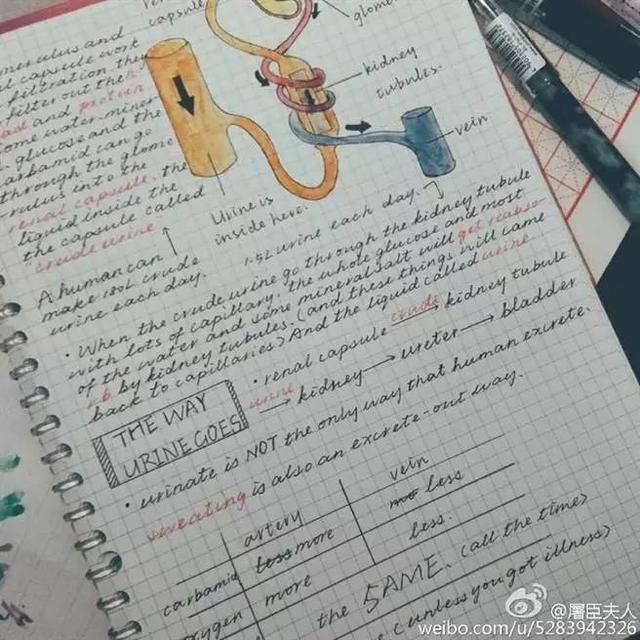 capsule
glome
kidney
tubules.
vein
merulus and
capsule work
filtration, the
filter out the
and protein
some water, miner
glucose and the
carbamid can go
through the glome
-rulus into the
renal capsule. the
liquid inside the
the capsule called
crude urine
Urine is
inside here.
A human can
make 180L crude
urine each day.
1.5L urine each day.
· When the crude urine go through the kidney tubule
with lots of capillary. the whole glucose and most
of the water and some mineral salt will get reabso-
r b by kidney tubules. (and these things will came
back to capillaries) And the liquid called urine
THE WAY
URINE GOES
· renal capsule crude kidney tubule
urine → kidney → ureter → bladder
· urinate is NOT the only way that human excrete.
sweating is also an excrete-out way.
artery vein
carbamid less more more less
oxygen more less.
the SAME. (all the time)
(unless you got illness)
@屠臣夫人
weibo.com/u/5283942326